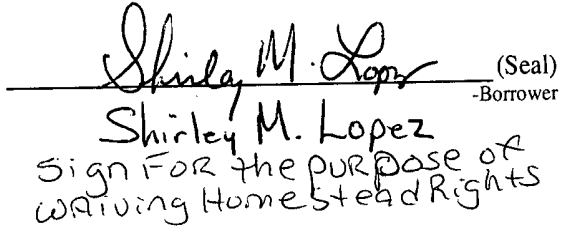 Shirley M. Lopez (Seal)
-Borrower
Shirley M. Lopez
Sign FOR the purpose of
waiving Homestead Rights